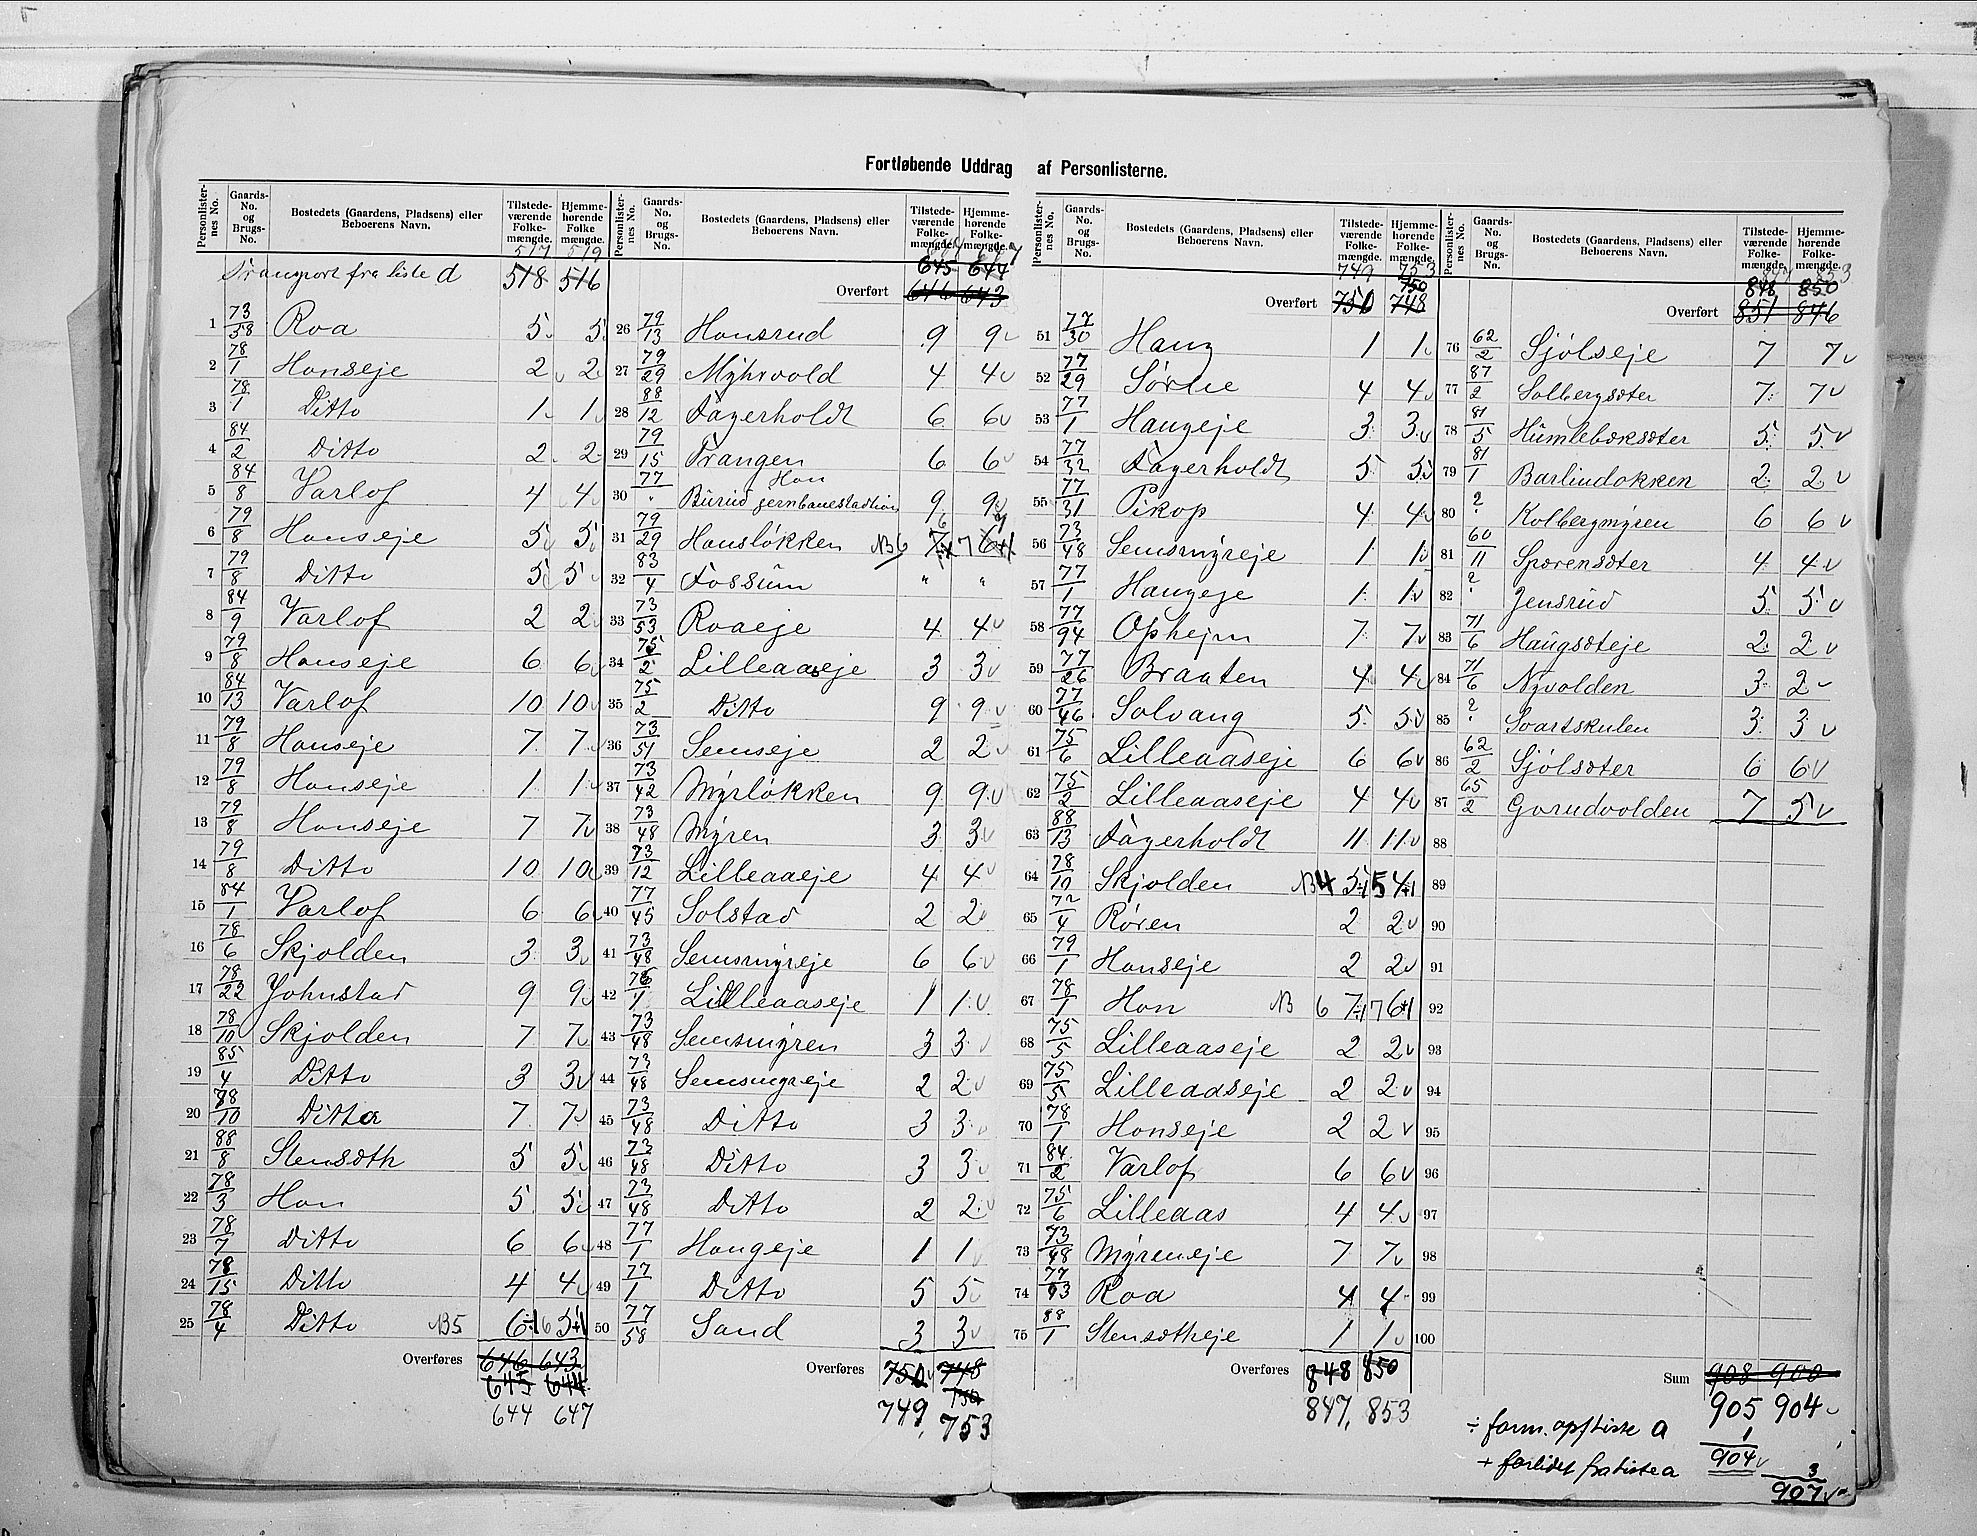 Fortløbende Uddrag af Personlisterne.
Personlister-nes No. | Gaards-No. og Brugs-No. | Bostedets (Gaardens, Pladsens) eller Beboerens Navn. | Tilstede-værende Folke-mængde. | Hjemme-hørende Folke mængde.
517 519
Transport fra liste d 518 516
1 73/58 Roa 5 5
2 78/1 Honseje 2 2
3 78/1 Ditto 1 1
4 84/2 Ditto 2 2
5 84/8 Varlof 4 4
6 79/8 Honseje 5 5
7 79/8 Ditto 5 5
8 84/9 Varlof 2 2
9 79/8 Honseje 6 6
10 84/13 Varlof 10 10
11 79/8 Honseje 7 7
12 79/8 Honseje 1 1
13 79/8 Honseje 7 7
14 79/8 Ditto 10 10
15 84/1 Varlof 6 6
16 78/6 Skjolden 3 3
17 78/22 Johnstad 9 9
18 78/10 Skjolden 7 7
19 85/4 Ditto 3 3
20 78/10 Ditto 7 7
21 88/8 Stensæth 5 5
22 78/3 Hon 5 5
23 78/7 Ditto 6 6
24 78/15 Ditto 4 4
25 78/4 Ditto NB 5 6÷1 6 5+1
Overføres 646 643
645 644
644 647
Personlister-nes No. | Gaards-No. og Brugs-No. | Bostedets (Gaardens, Pladsens) eller Beboerens Navn. | Tilstede-værende Folke-mængde. | Hjemme-hørende Folke-mængde.
645 644
Overført 646 643
26 79/13 Honsrud 9 9
27 79/29 Myhrvold 4 4
28 88/12 Fagerholdt 6 6
29 79/15 Trangen 6 6
30 77/" Hon Burud jernbanestadtion 9 9
31 79/29 Honsløkken NB 6 7÷1 7 6+1
32 83/4 Fossum " "
33 73/53 Roaeje 4 4
34 75/2 Lilleaaseje 3 3
35 75/2 Ditto 9 9
36 73/51 Semseje 2 2
37 73/42 Myrløkken 9 9
38 73/48 Myren 3 3
39 73/12 Lilleaaeje 4 4
40 77/45 Solstad 2 2
41 73/48 Semsmyreje 6 6
42 76/1 Lilleaaseje 1 1
43 73/48 Semsmyren 3 3
44 73/48 Semsmyreje 2 2
45 73/48 Ditto 3 3
46 73/48 Ditto 3 3
47 73/48 Ditto 2 2
48 77/1 Hougeje 1 1
49 77/1 Ditto 5 5
50 77/58 Sand 3 3
Overføres 750 748
750
749 753
Personlister-nes No. | Gaards-No. og Brugs-No. | Bostedets (Gaardens, Pladsens) eller Beboerens Navn. | Tilstede-værende Folke-mængde. | Hjemme-hørende Folke-mængde.
749 753
750
Overført 750 748
51 77/30 Haug 1 1
52 77/29 Sørlie 4 4
53 77/1 Haugeje 3 3
54 77/32 Fagerholdt 5 5
55 77/31 Pikop 4 4
56 73/48 Semsmyreje 1 1
57 77/1 Haugeje 1 1
58 77/94 Ophejm 7 7
59 77/26 Braaten 4 4
60 77/46 Solvang 5 5
61 75/6 Lilleaaseje 6 6
62 75/2 Lilleaaseje 4 4
63 88/13 Fagerholdt 11 11
64 78/10 Skjolden NB 4 5÷1 5 4+1
65 72/4 Røren 2 2
66 79/1 Honseje 2 2
67 78/1 Hon NB 6 7÷1 7 6+1
68 75/5 Lilleaaseje 2 2
69 75/5 Lilleaaseje 2 2
70 78/1 Honseje 2 2
71 84/2 Varlof 6 6
72 75/6 Lilleaas 4 4
73 73/48 Myreneje 7 7
74 Roa 4 4
75 88/1 Stensætheje 1 1
Overføres 848 850
847 853
Personlister-nes No. | Gaards-No. og Brugs-No. | Bostedets (Gaardens, Pladsens) eller Beboerens Navn. | Tilstede-værende Folke-mængde. | Hjemme-hørende Folke-mængde.
847 853
848 850
Overført 851 846
76 62/2 Sjølseje 7 7
77 87/2 Solbergsæter 7 7
78 81/5 Humlebæksæter 5 5
79 81/1 Barlindækken 2 2
80 ?/" Kolbergmyren 6 6
81 60/11 Sporensæter 4 4
82 ?/" Jensrud 5 5
83 71/6 Haugsæteje 2 2
84 71/6 Nyvolden 3 2
85 ?/" Svartskulen 3 3
86 62/2 Sjølsæter 6 6
87 65/2 Gorudvolden 7 5
88
89
90
91
92
93
94
95
96
97
98
99
100
Sum 908 900
905 904
÷ form. opf liste a 1
904
+ forlidet fra liste a 3
907